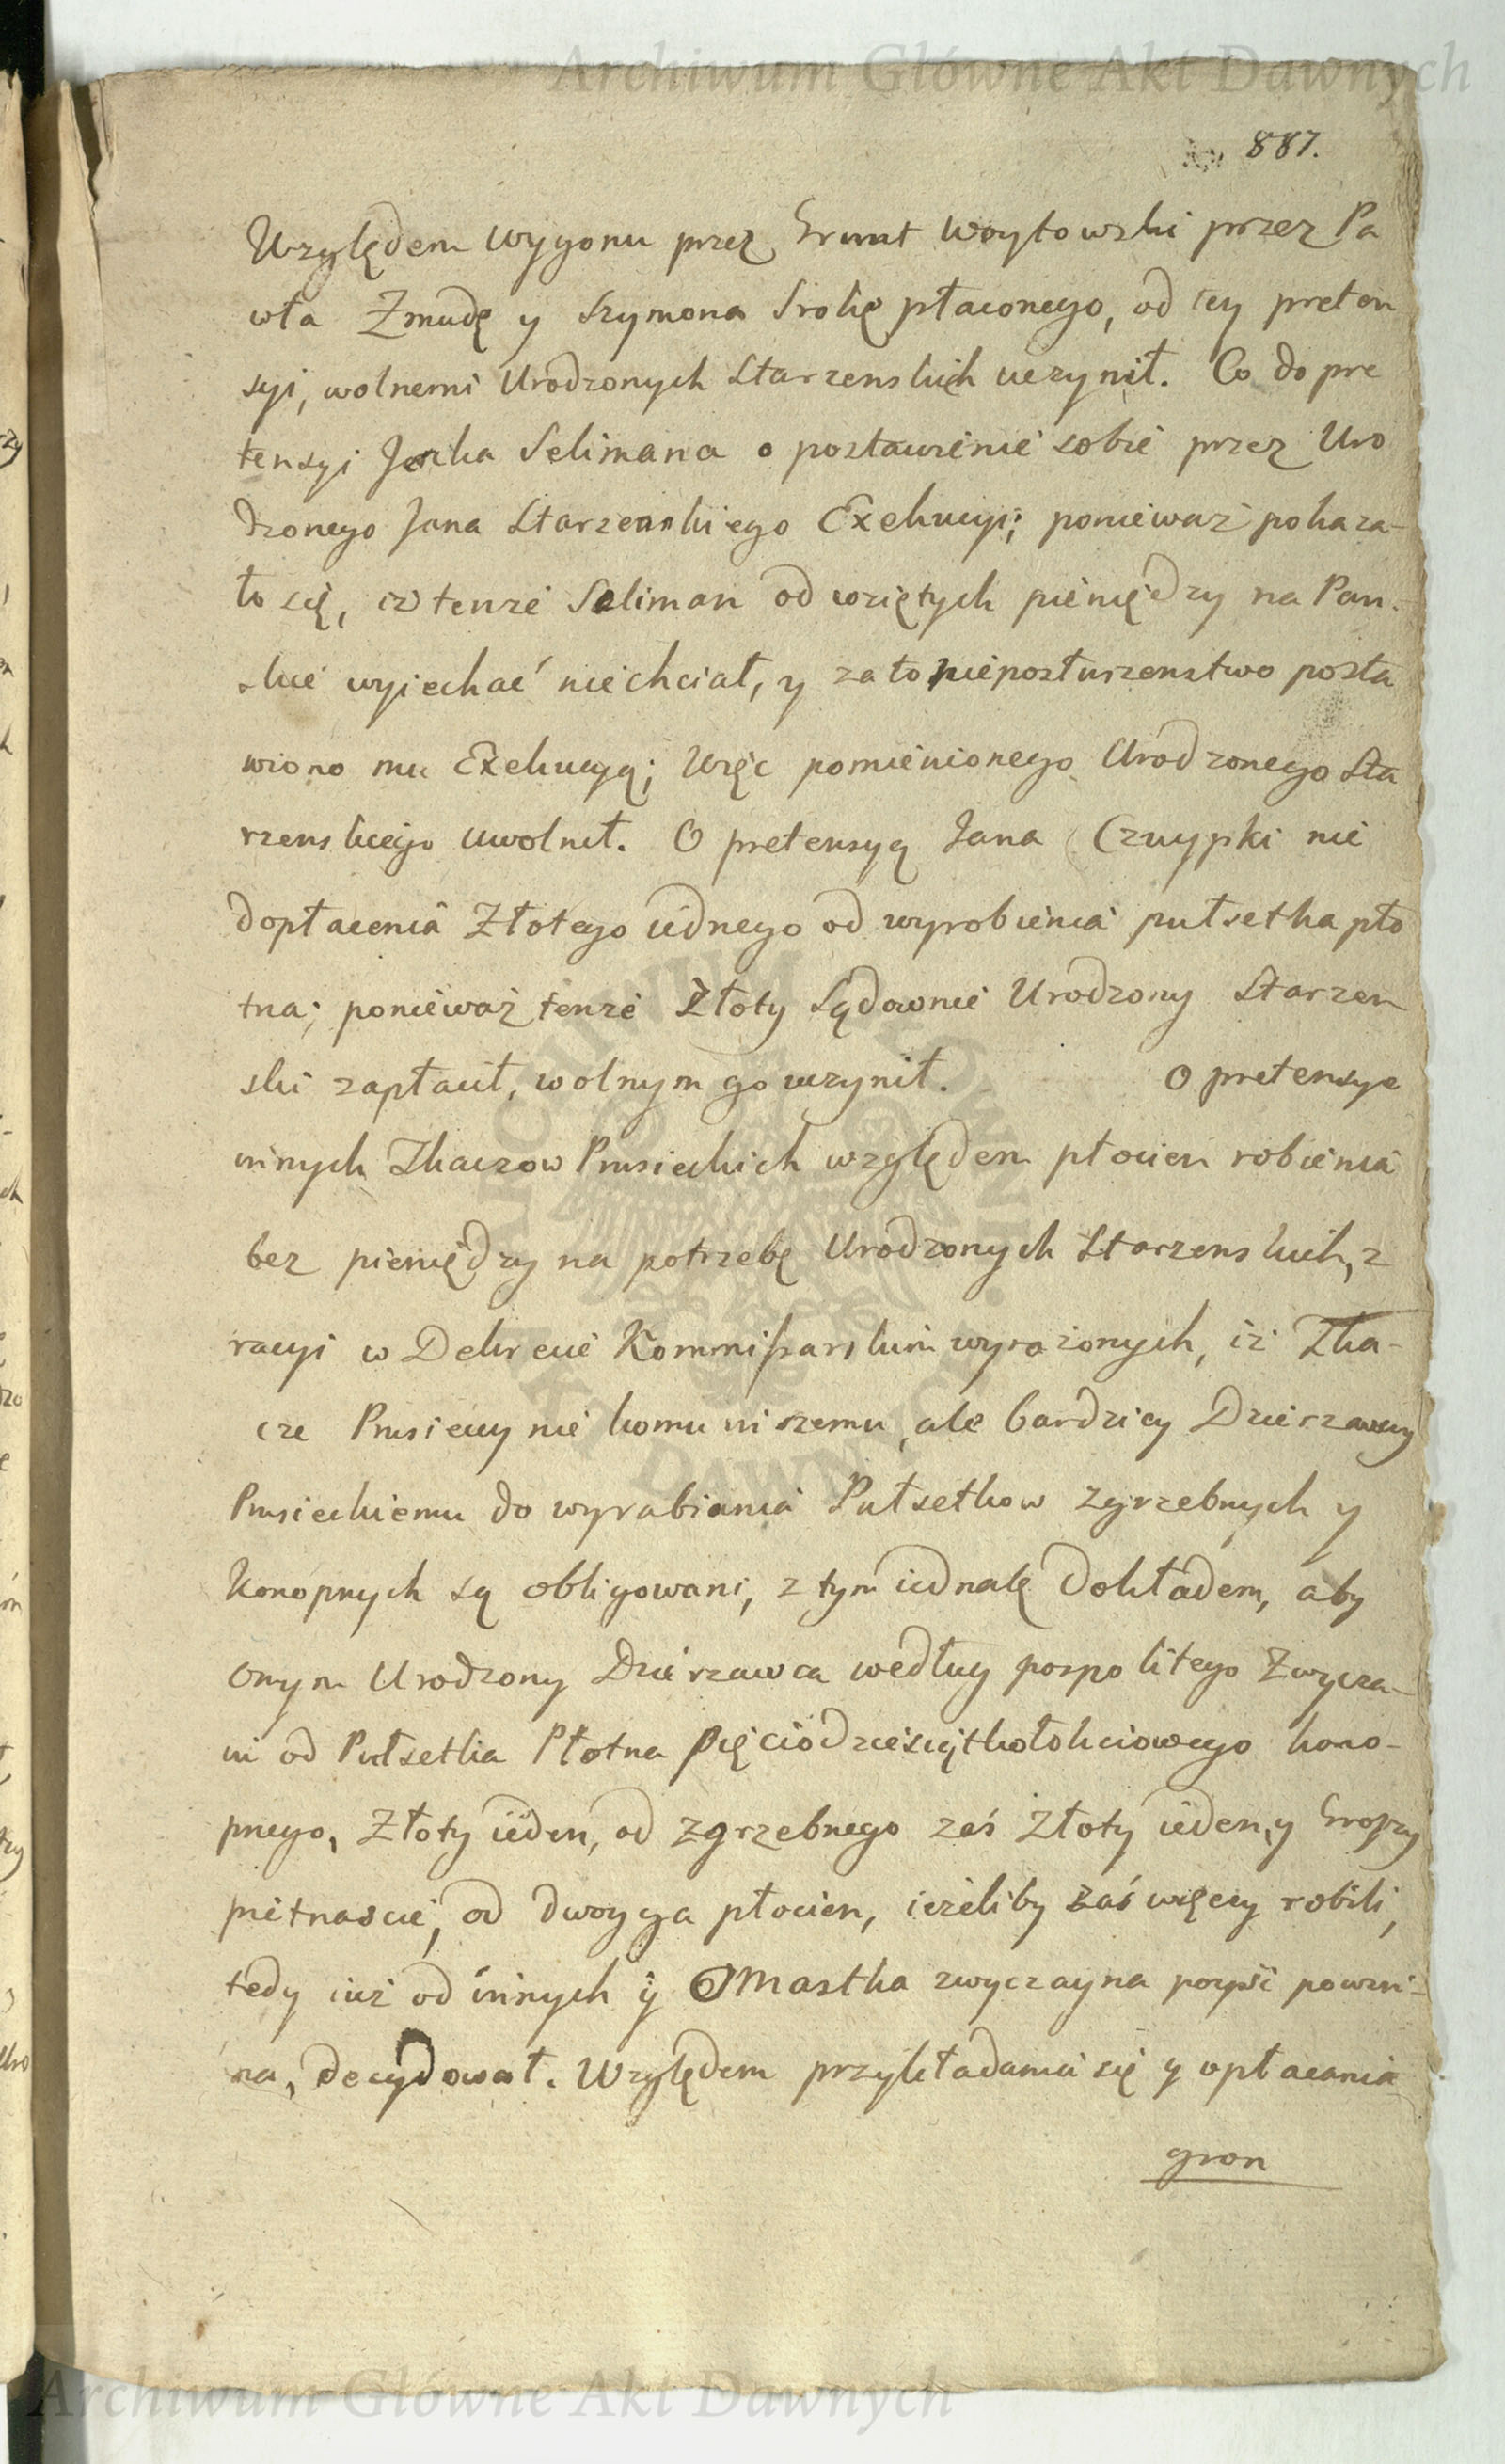 Archiwum Główne Akt Dawnych
887.
Względem wygonu przez Grunt Woytowski przez Pa
wła Zmudę y Szymona Srokę płaconego, od tey preten
syi, wolnemi Urodzonych Starzenskich uczynił. Co do pre
tensyi Jaska Selimana o postawienie sobie przez Uro
dzonego Jana Starzenskiego Exekucyi; ponieważ pokaza-
ło się, iż tenże Seliman od wziętych pieniędzy na Pan-
skie wyiechać niechciał, y za to nieposłuszenstwo posta
wiono mu Exekucyą; Więc pomienionego Urodzonego Sta
rzenskiego uwolnił. O pretensyą Jana Czuypki nie
dopłacenia Złotego iednego od wyrobienia pułsetka płó
tna; ponieważ tenże Złoty Sądownie Urodzony Starzen
ski zapłacił, wolnym go uczynił. O pretensye
innych Tkaczow Prusieckich względem płocien robienia
bez pieniędzy na potrzebę Urodzonych Starzenskich, z
racyi w Dekrecie Kommissarskim wyrażonych, iż Tka-
cze Prusieccy nie komu inszemu, ale bardziey Dzierzawcy
Prusieckiemu do wyrabiania Pułsetkow Zgrzebnych y
Konopnych są obligowani, z tym iednak Dokładem, aby
onym Urodzony Dzierzawca według pospolitego Zwycza-
iu od Pułsetka Płotna pięciodziesiątkołokciowego kono-
pnego, Złoty ieden, od zgrzebnego zaś Złoty ieden y Groszy
pietnascie, od dwoyga płocien, ieżeliby zaś więcey robili,
tedy iuż od innych y Omastka zwyczayna poyść powin-
na, decydował. Względem przykładania się y opłacania
gron
ARCHIWUM GŁÓWNE AKT DAWNYCH
Archiwum Główne Akt Dawnych